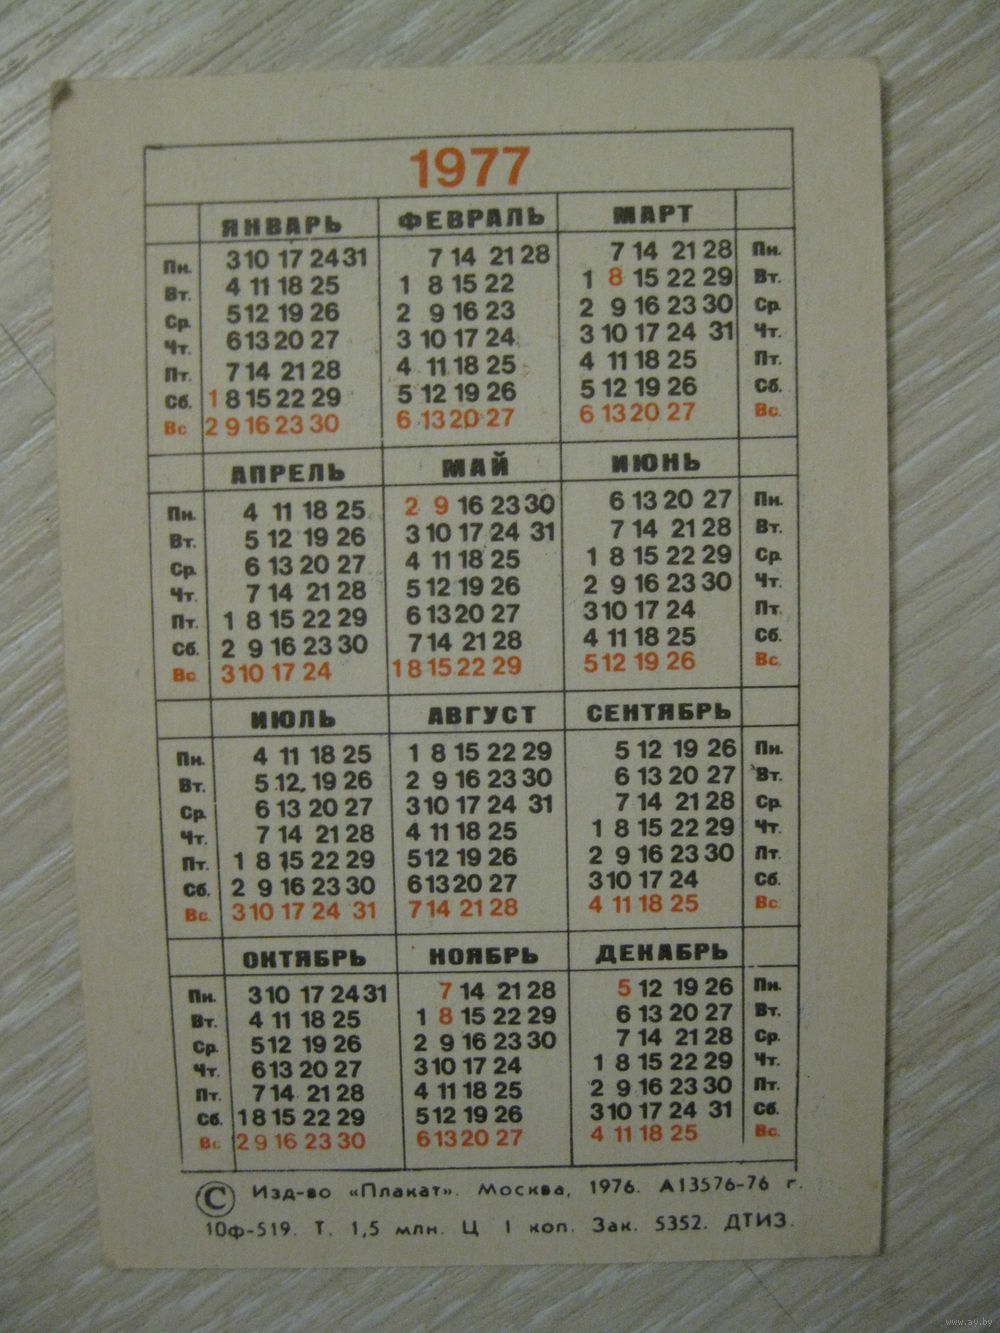 1977
ЯНВАРЬ ФЕВРАЛЬ МАРТ
Пн. 3 10 17 24 31 7 14 21 28 7 14 21 28 Пн.
Вт. 4 11 18 25 1 8 15 22 1 8 15 22 29 Вт.
Ср. 5 12 19 26 2 9 16 23 2 9 16 23 30 Ср.
Чт. 6 13 20 27 3 10 17 24 3 10 17 24 31 Чт.
Пт. 7 14 21 28 4 11 18 25 4 11 18 25 Пт.
Сб. 1 8 15 22 29 5 12 19 26 5 12 19 26 Сб.
Вс 2 9 16 23 30 6 13 20 27 6 13 20 27 Вс.
АПРЕЛЬ МАЙ ИЮНЬ
Пн. 4 11 18 25 2 9 16 23 30 6 13 20 27 Пн.
Вт. 5 12 19 26 3 10 17 24 31 7 14 21 28 Вт.
Ср. 6 13 20 27 4 11 18 25 1 8 15 22 29 Ср.
Чт. 7 14 21 28 5 12 19 26 2 9 16 23 30 Чт.
Пт. 1 8 15 22 29 6 13 20 27 3 10 17 24 Пт.
Сб. 2 9 16 23 30 7 14 21 28 4 11 18 25 Сб.
Вс. 3 10 17 24 1 8 15 22 29 5 12 19 26 Вс.
ИЮЛЬ АВГУСТ СЕНТЯБРЬ
Пн. 4 11 18 25 1 8 15 22 29 5 12 19 26 Пн.
Вт. 5 12 19 26 2 9 16 23 30 6 13 20 27 Вт.
Ср. 6 13 20 27 3 10 17 24 31 7 14 21 28 Ср.
Чт. 7 14 21 28 4 11 18 25 1 8 15 22 29 Чт.
Пт. 1 8 15 22 29 5 12 19 26 2 9 16 23 30 Пт.
Сб. 2 9 16 23 30 6 13 20 27 3 10 17 24 Сб.
Вс. 3 10 17 24 31 7 14 21 28 4 11 18 25 Вс.
ОКТЯБРЬ НОЯБРЬ ДЕКАБРЬ
Пн. 3 10 17 24 31 7 14 21 28 5 12 19 26 Пн.
Вт. 4 11 18 25 1 8 15 22 29 6 13 20 27 Вт.
Ср. 5 12 19 26 2 9 16 23 30 7 14 21 28 Ср.
Чт. 6 13 20 27 3 10 17 24 1 8 15 22 29 Чт.
Пт. 7 14 21 28 4 11 18 25 2 9 16 23 30 Пт.
Сб. 1 8 15 22 29 5 12 19 26 3 10 17 24 31 Сб.
Вс 2 9 16 23 30 6 13 20 27 4 11 18 25 Вс.
© Изд-во «Плакат». Москва, 1976. А13576-76 г.
10ф-519. Т. 1,5 млн. Ц 1 коп. Зак. 5352. ДТИЗ.
www.ay.by